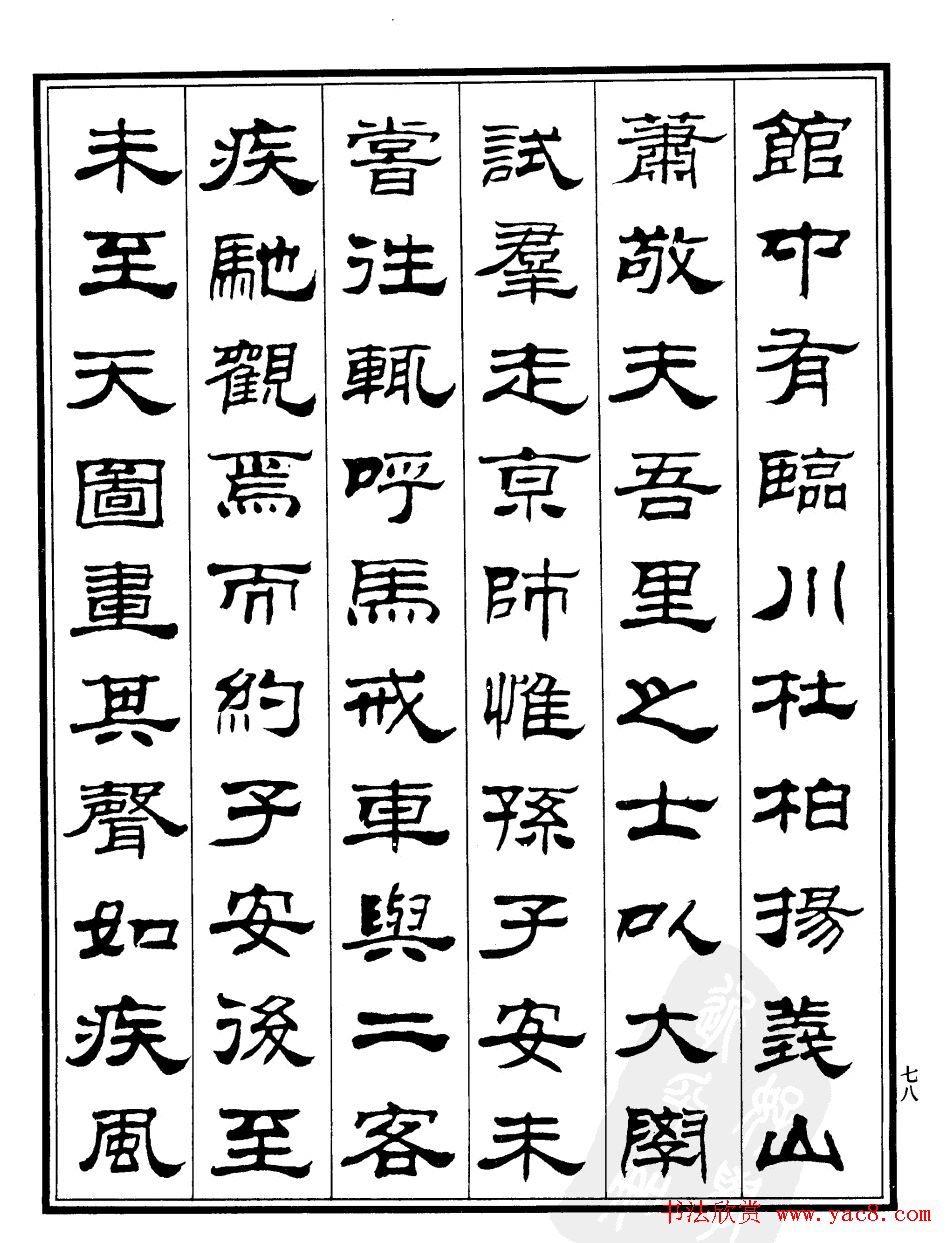 館中有臨川杜柏揚義山
蕭敬夫吾里之士以大學
試羣走京師惟孫子安未
嘗往輒呼馬戒車與二客
疾馳觀焉而約子安後至
未至天圖畫其聲如疾風
七八
书法欣赏 www.yac8.com